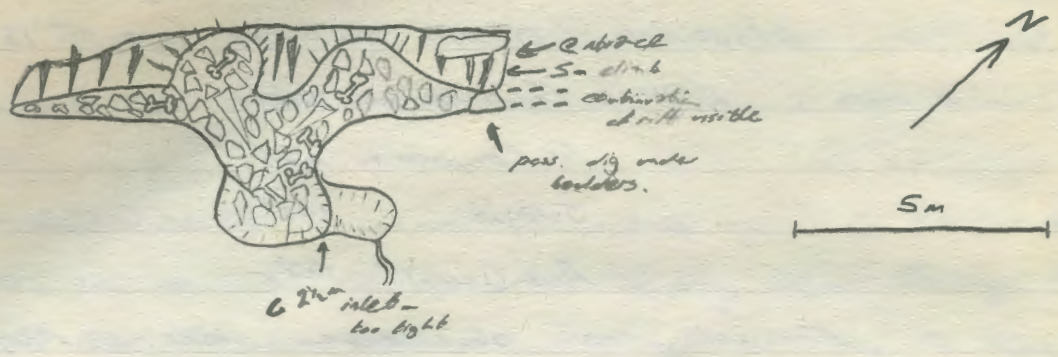 N
← entrance
← 5m climb
continuation
of rift visible
poss. dig under
boulders.
5m
inlet -
too tight